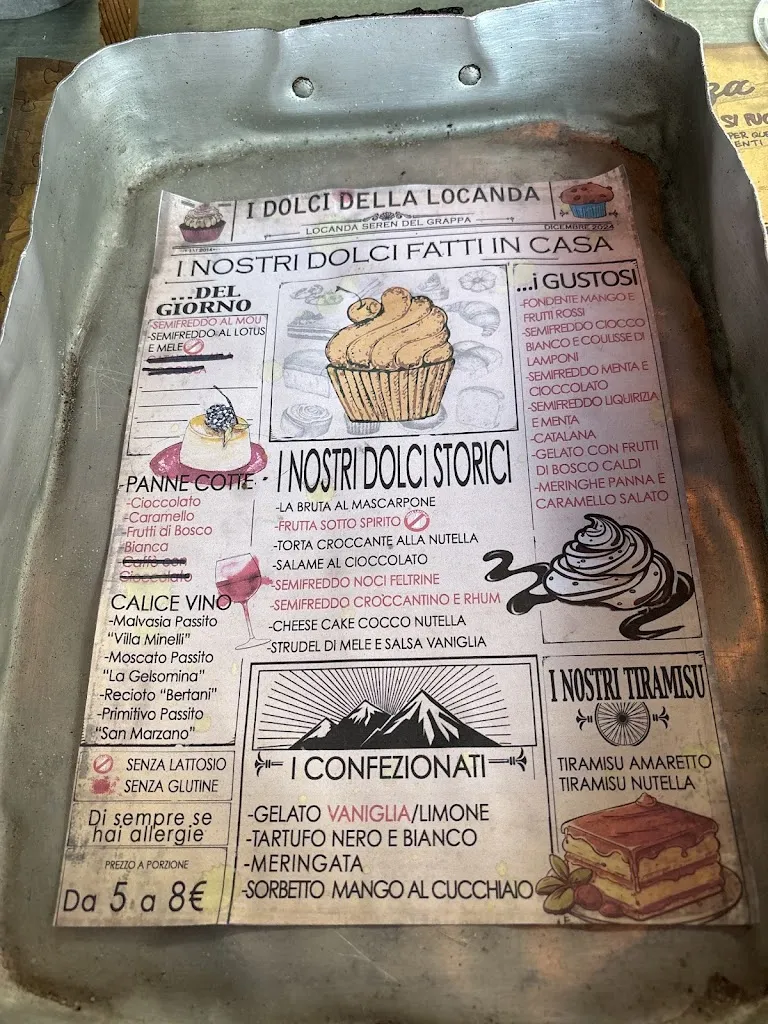 I DOLCI DELLA LOCANDA
LOCANDA SEREN DEL GRAPPA
DICEMBRE 2024
I NOSTRI DOLCI FATTI IN CASA
...DEL
GIORNO
-SEMIFREDDO AL MOU
-SEMIFREDDO AL LOTUS
E MELE
PANNE COTTE
-Cioccolato
-Caramello
-Frutti di Bosco
-Bianca
Caffè con
Cioccolato
CALICE VINO
-Malvasia Passito
"Villa Minelli"
-Moscato Passito
"La Gelsomina"
-Recioto "Bertani"
-Primitivo Passito
"San Marzano"
SENZA LATTOSIO
SENZA GLUTINE
Di sempre se
hai allergie
PREZZO A PORZIONE
Da 5 a 8€
I NOSTRI DOLCI STORICI
-LA BRUTA AL MASCARPONE
-FRUTTA SOTTO SPIRITO
-TORTA CROCCANTE ALLA NUTELLA
-SALAME AL CIOCCOLATO
-SEMIFREDDO NOCI FELTRINE
-SEMIFREDDO CROCCANTINO E RHUM
-CHEESE CAKE COCCO NUTELLA
-STRUDEL DI MELE E SALSA VANIGLIA
I CONFEZIONATI
-GELATO VANIGLIA/LIMONE
-TARTUFO NERO E BIANCO
-MERINGATA
-SORBETTO MANGO AL CUCCHIAIO
...i GUSTOSI
-FONDENTE MANGO E
FRUTTI ROSSI
-SEMIFREDDO CIOCCO
BIANCO E COULISSE DI
LAMPONI
-SEMIFREDDO MENTA E
CIOCCOLATO
-SEMIFREDDO LIQUIRIZIA
E MENTA
-CATALANA
-GELATO CON FRUTTI
DI BOSCO CALDI
-MERINGHE PANNA E
CARAMELLO SALATO
I NOSTRI TIRAMISU
TIRAMISU AMARETTO
TIRAMISU NUTELLA
za
SI PUO
PER QUE
ENTI